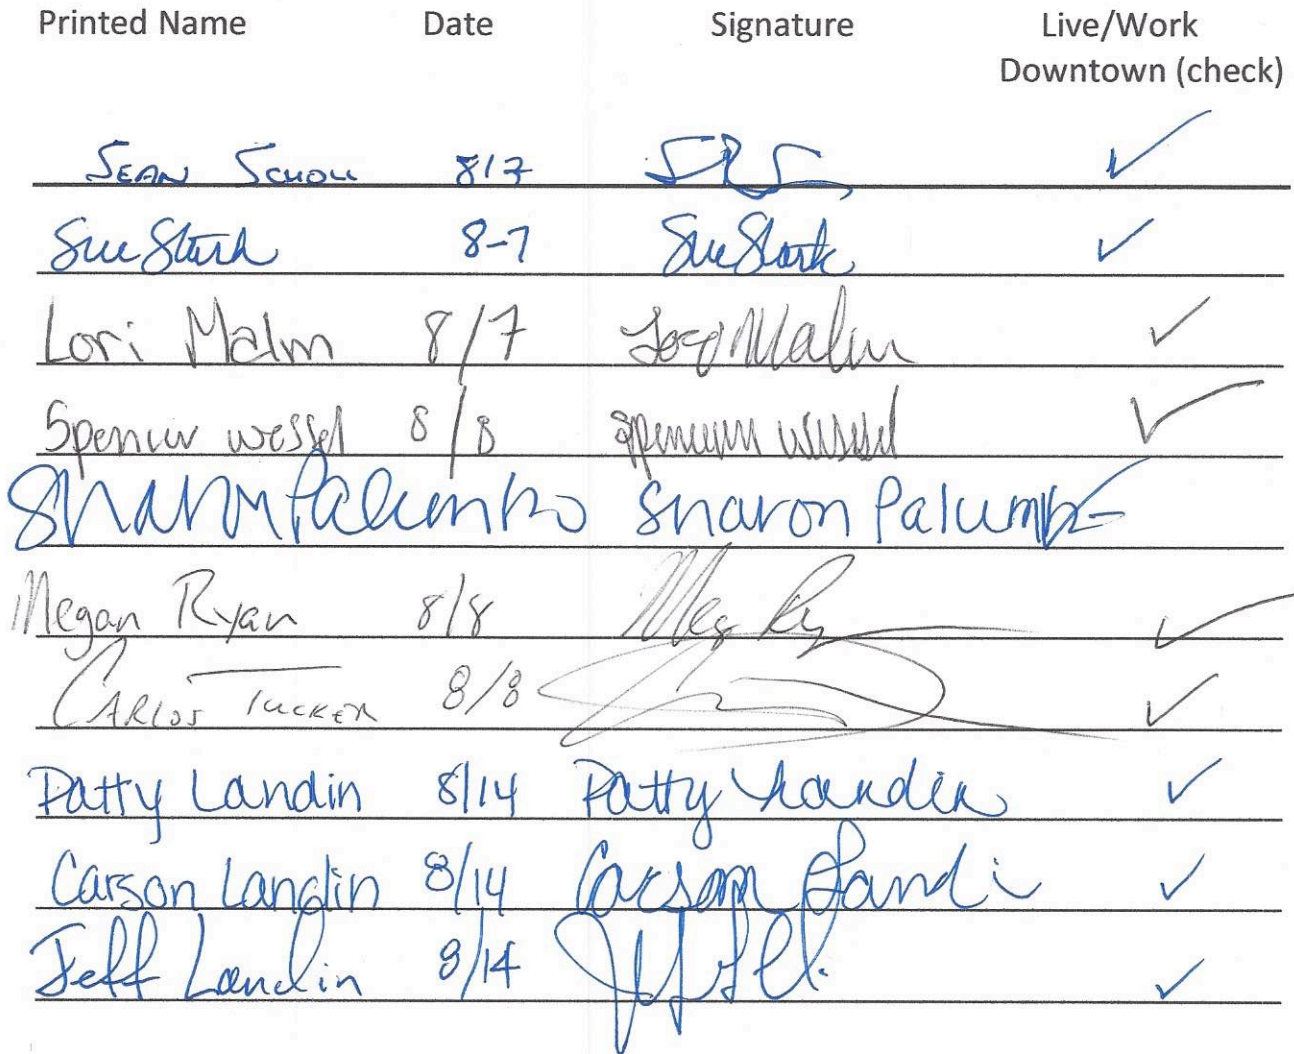 Printed Name Date Signature Live/Work
Downtown (check)
SEAN SCHOLL 8/7 ✓
Sue Stark 8-7 Sue Stark ✓
Lori Malm 8/7 Lori Malm ✓
Spencer Wessel 8/8 Spencer Wessel ✓
Sharon Palumbo Sharon Palumbo ✓
Megan Ryan 8/8 Meg Ry ✓
CARLOS TUCKER 8/8 ✓
Patty Landin 8/14 Patty Landin ✓
Carson Landin 8/14 Carson Landi ✓
Jeff Landin 8/14 ✓